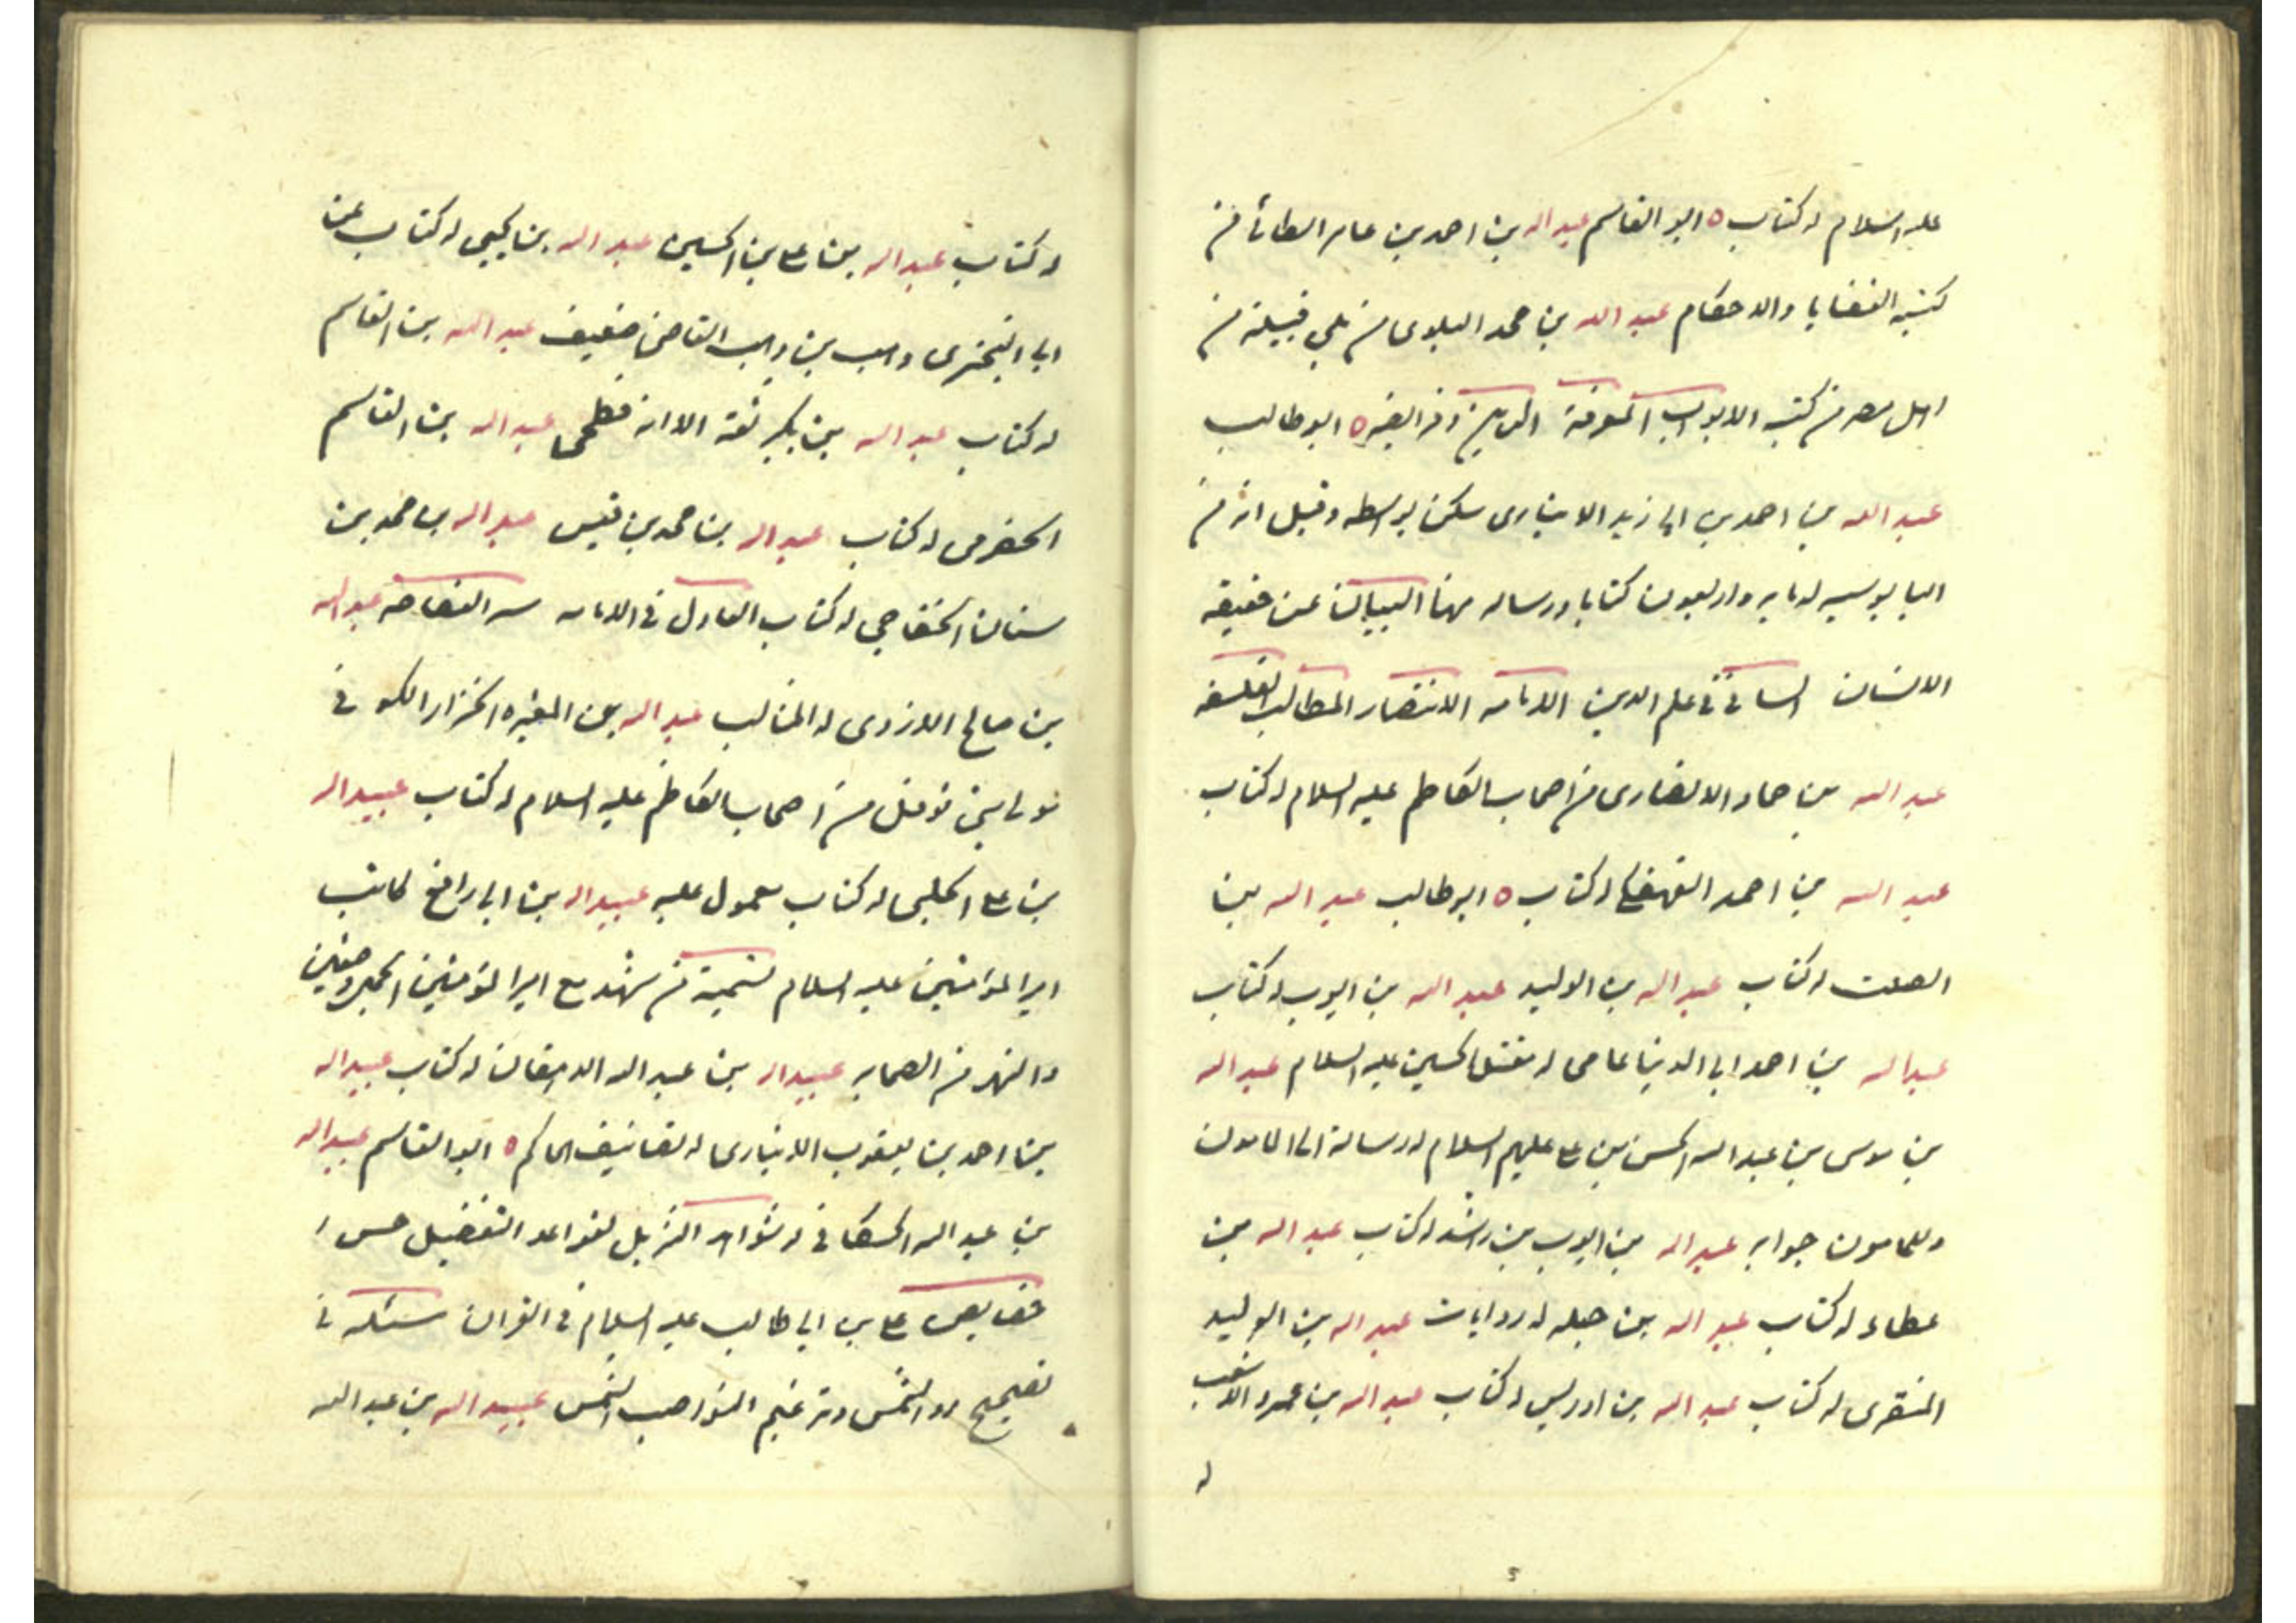 عليه السلام له كتاب ٥ ابو القاسم عبد الله بن احمد بن عامر الطائى من
كتبه القضايا والاحكام عبد الله بن محمد البلوى من بلي قبيلة من
اهل مصر من كتبه الابواب المعرفة الدين وفرايضه ٥ ابو طالب
عبد الله بن احمد بن ابى زيد الانبارى سكن بواسطه وقيل انه من
البابوسيه له مايه واربعون كتابا ورساله منها البيان عن حقيقه
الانسان الشافى فى علم الدين الامامه الانتصار المطالب الفلسفه
عبد الله بن حماد الانصارى من اصحاب الكاظم عليه السلام له كتاب
عبد الله بن احمد النهفكى له كتاب ٥ ابو طالب عبد الله بن
الصلت له كتاب عبد الله بن الوليد عبد الله بن ايوب له كتاب
عبد الله بن احمد ابى الدنيا عامى له مقتل الحسين عليه السلام عبد الله
بن موسى بن عبد الله الحسن بن على عليهم السلام له رسالة الى المامون
وللمامون جوابه عبد الله بن ايوب بن راشد له كتاب عبد الله بن
عطاء له كتاب عبد الله بن جبله له روايات عبد الله بن الوليد
المنقرى له كتاب عبد الله بن ادريس له كتاب عبد الله بن عمرو الاشعب
له
له كتاب عبد الله بن على بن الحسين عبد الله بن يحيى له كتاب عن
ابى البخترى وهب بن وهب القاضى ضعيف عبد الله بن القاسم
له كتاب عبد الله بن بكير ثقة الا انه فطحى عبد الله بن القاسم
الحضرمى له كتاب عبد الله بن محمد بن قيس عبد الله بن محمد بن
سنان الخفاجى له كتاب العادل فى الامامه سر الفصاحه عبد الله
بن صالح الازدى له المثالب عبد الله بن المغيره الخزاز الكوفى
مولى بنى نوفل من اصحاب الكاظم عليه السلام له كتاب عبيد الله
بن على الحلبى له كتاب معمول عليه عبيد الله بن ابى رافع كاتب
امير المؤمنين عليه السلام تسمية من شهد مع امير المؤمنين الجمل وصفين
والنهر من الصحابه عبيد الله بن عبد الله الدهقان له كتاب عبيد الله
بن احمد بن يعقوب الانبارى له تصانيف الحاكم ٥ ابو القاسم عبيد الله
بن عبد الله الحسكانى له شواهد التنزيل لقواعد التفضيل حسن ا
خصايص على بن ابى طالب عليه السلام فى القران مسئله فى
تصحيح رد الشمس وترغيم النواصب الشمس عبيد الله بن عبد الله